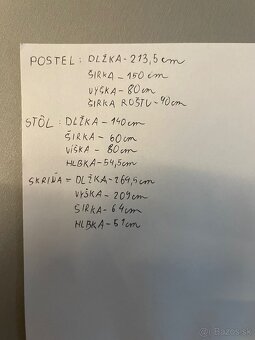 POSTEL: DLŽKA - 213,5cm
ŠIRKA - 150cm
VÝŠKA - 80cm
ŠIRKA ROŠTU - 90cm
STÔL: DLŽKA - 140cm
ŠIRKA - 60cm
VÍŠKA - 80cm
HLBKA - 54,5cm
SKRIŇA = DLŽKA - 264,5cm
VYŠKA - 209cm
ŠIRKA - 64cm
HLBKA - 51cm
© Bazos.sk